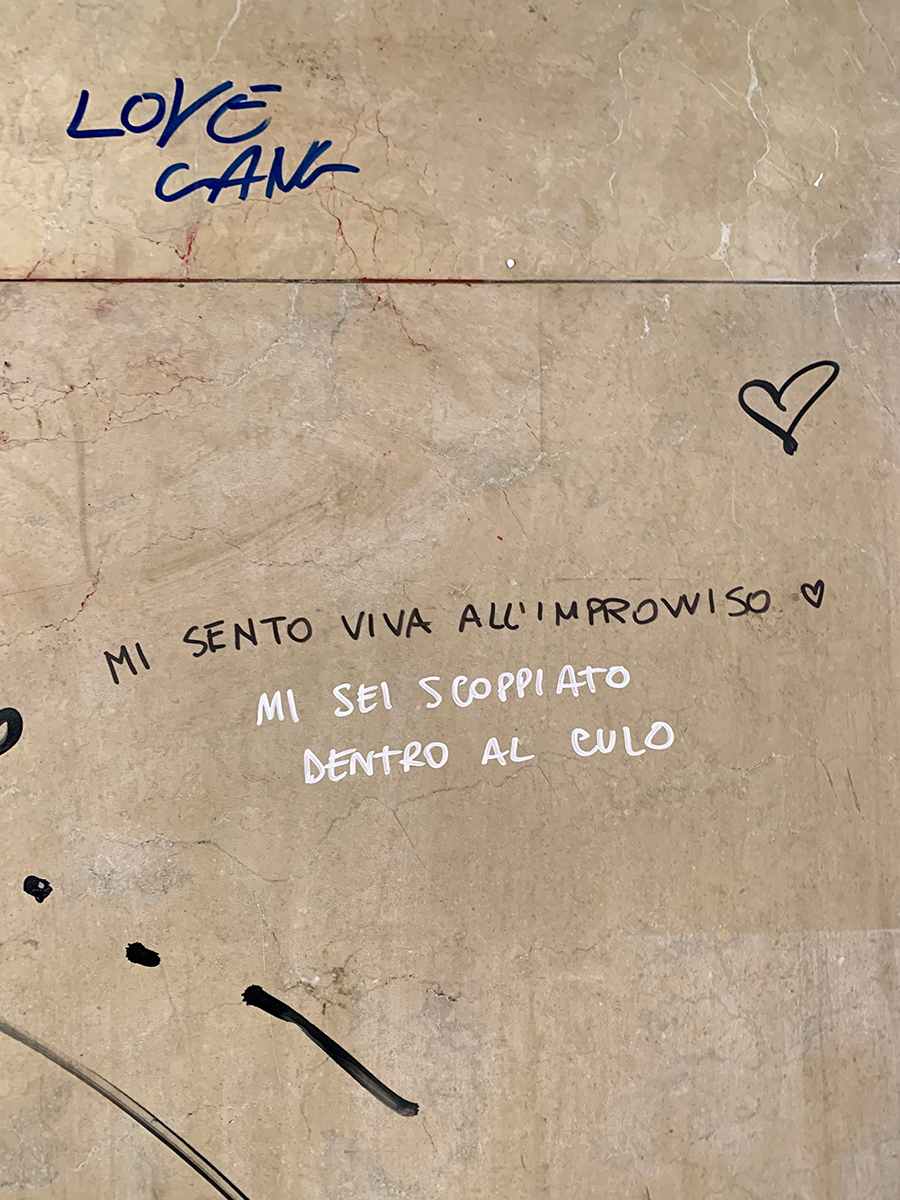 LOVE
GANG
MI SENTO VIVA ALL'IMPROVVISO
MI SEI SCOPPIATO
DENTRO AL CULO